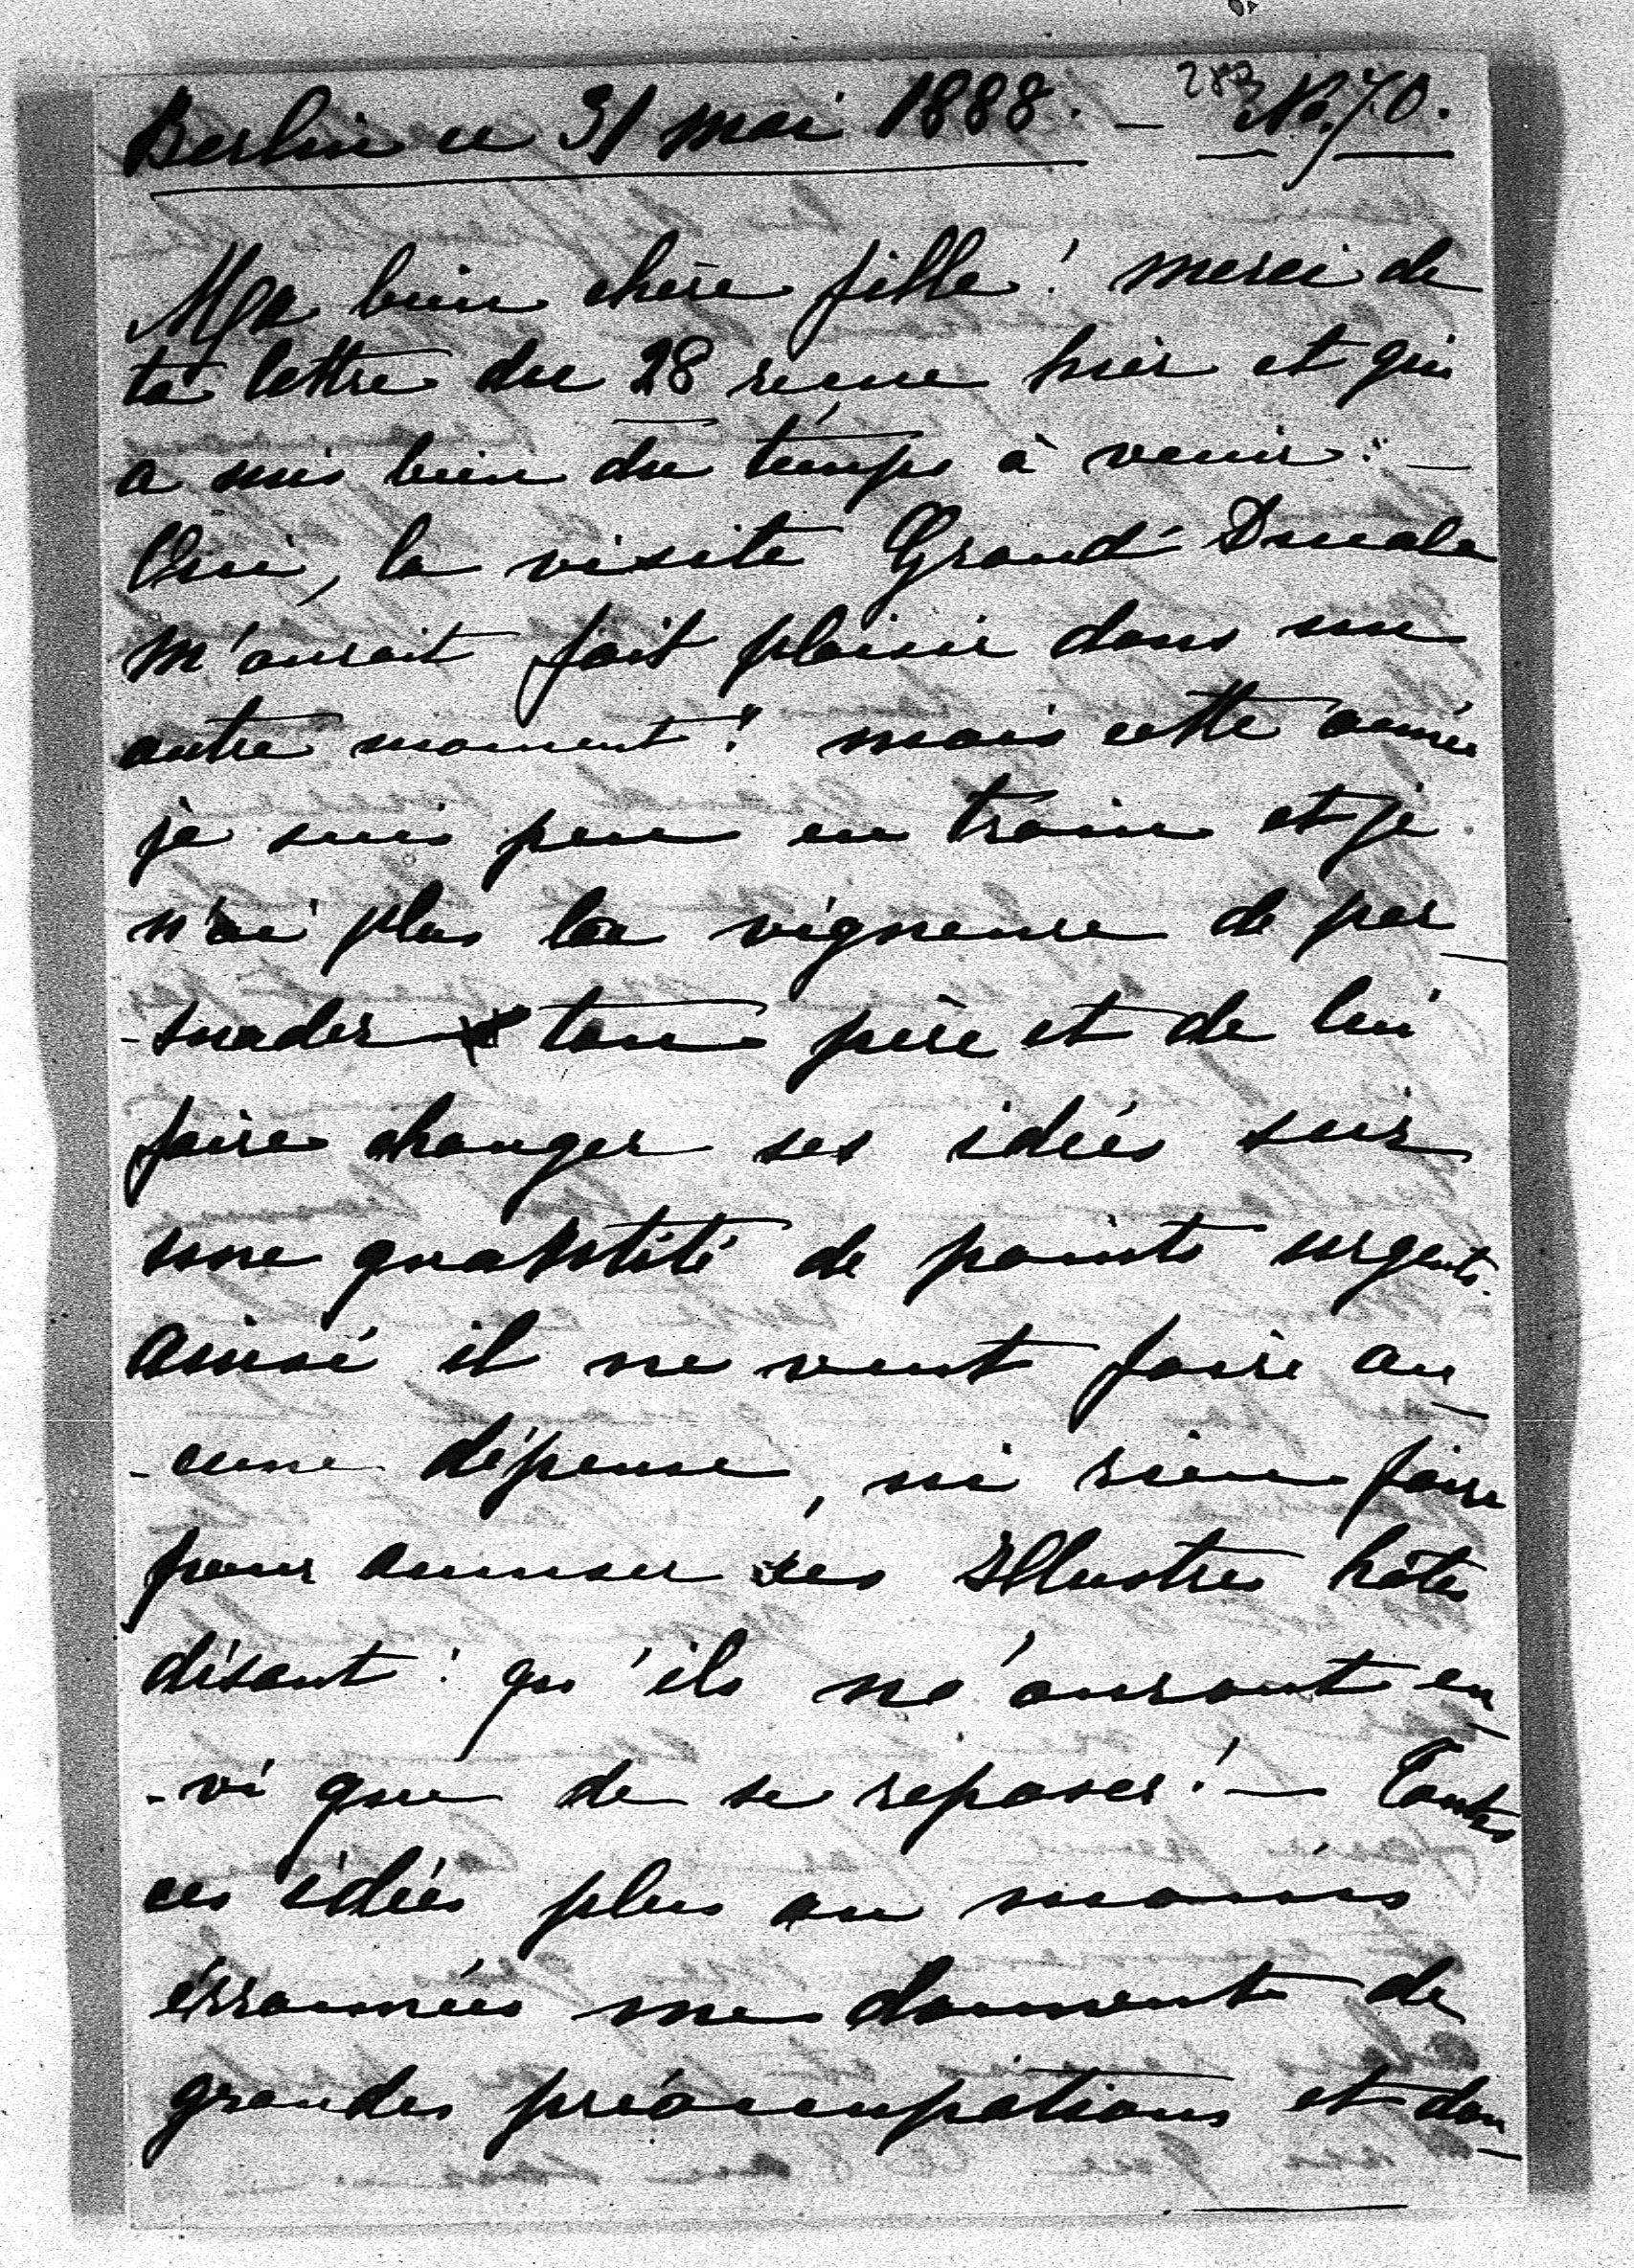 Berlin ce 31 mai 1888. — 283 No. 70.
Ma bien chère fille! merci de
ta lettre du 28 reçue hier et qui
a mis bien du temps à venir! —
Oui, la visite Grand-Ducale
m'aurait fait plaisir dans un
autre moment! mais cette année
je suis peu en train et je
n'ai plus la vigueure de per-
-suader ton père et de lui
faire changer ses idées sur
une quantité de points urgents.
Ainsi il ne veut faire au-
-cune dépense, ni rien faire
pour amuser ses Illustres hôtes
disant: qu'ils ne auront en-
-vi que de se reposer! — Toutes
ces idées plus ou moins
érronnées me donnent de
grandes préoccupations et don-